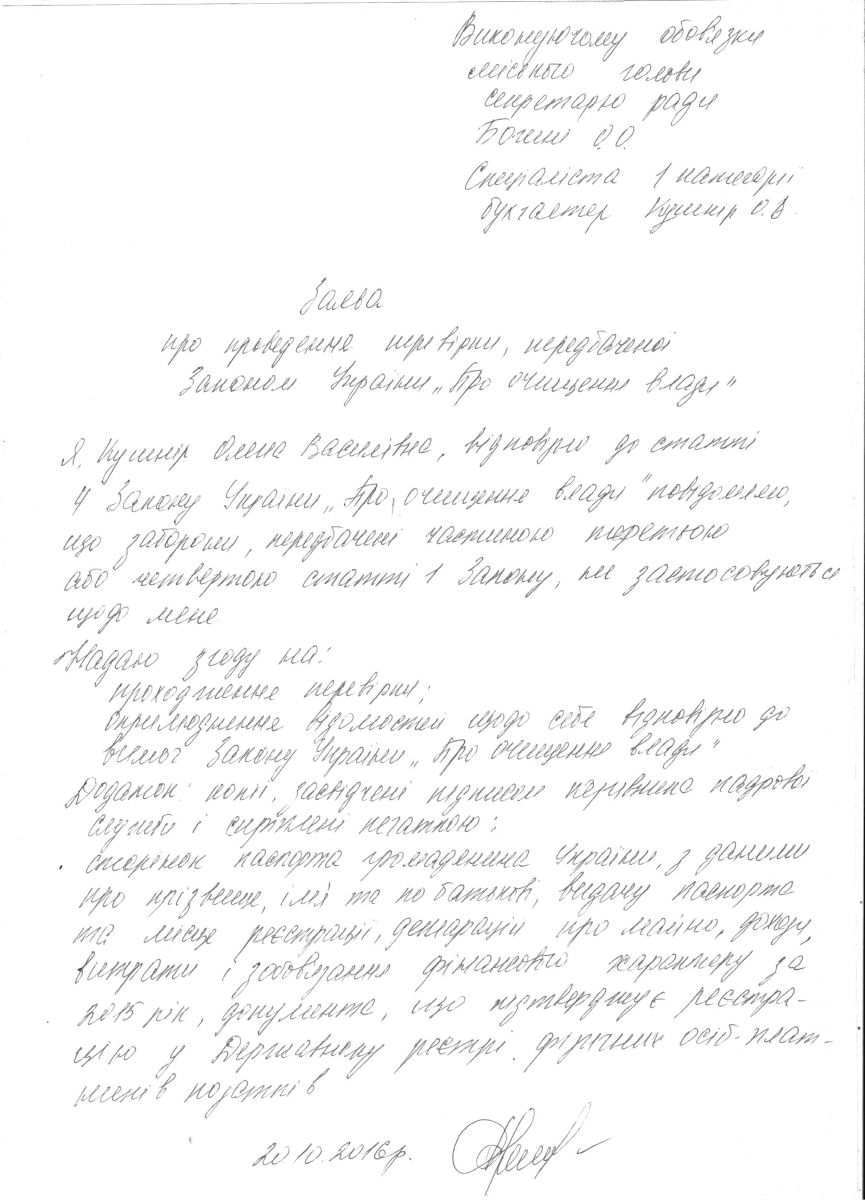 Виконуючому обов'язки
міського голови
секретарю ради
О.О.
Спеціаліста 1 категорії
бухгалтер Кушнір О.В.
Заява
про проведення перевірки, передбаченої
Законом України „Про очищення влади"
Я, Кушнір Олена Василівна, відповідно до статті
4 Закону України „Про очищення влади" повідомляю,
що заборони, передбачені частиною третьою
або четвертою статті 1 Закону, не застосовуються
щодо мене.
Надаю згоду на:
проходження перевірки;
оприлюднення відомостей щодо себе відповідно до
вимог Закону України „Про очищення влади"
Додаток: копії, засвідчені підписом керівника кадрової
служби і скріплені печаткою:
сторінок паспорта громадянина України, з даними
про прізвище, ім'я та по батькові, видачу паспорта
та місце реєстрації, декларацій про майно, доходи,
витрати і зобов'язання фінансового характеру за
2015 рік, документа, що підтверджує реєстра-
цію у Державному реєстрі фізичних осіб-плат-
ників податків
20.10.2016р.